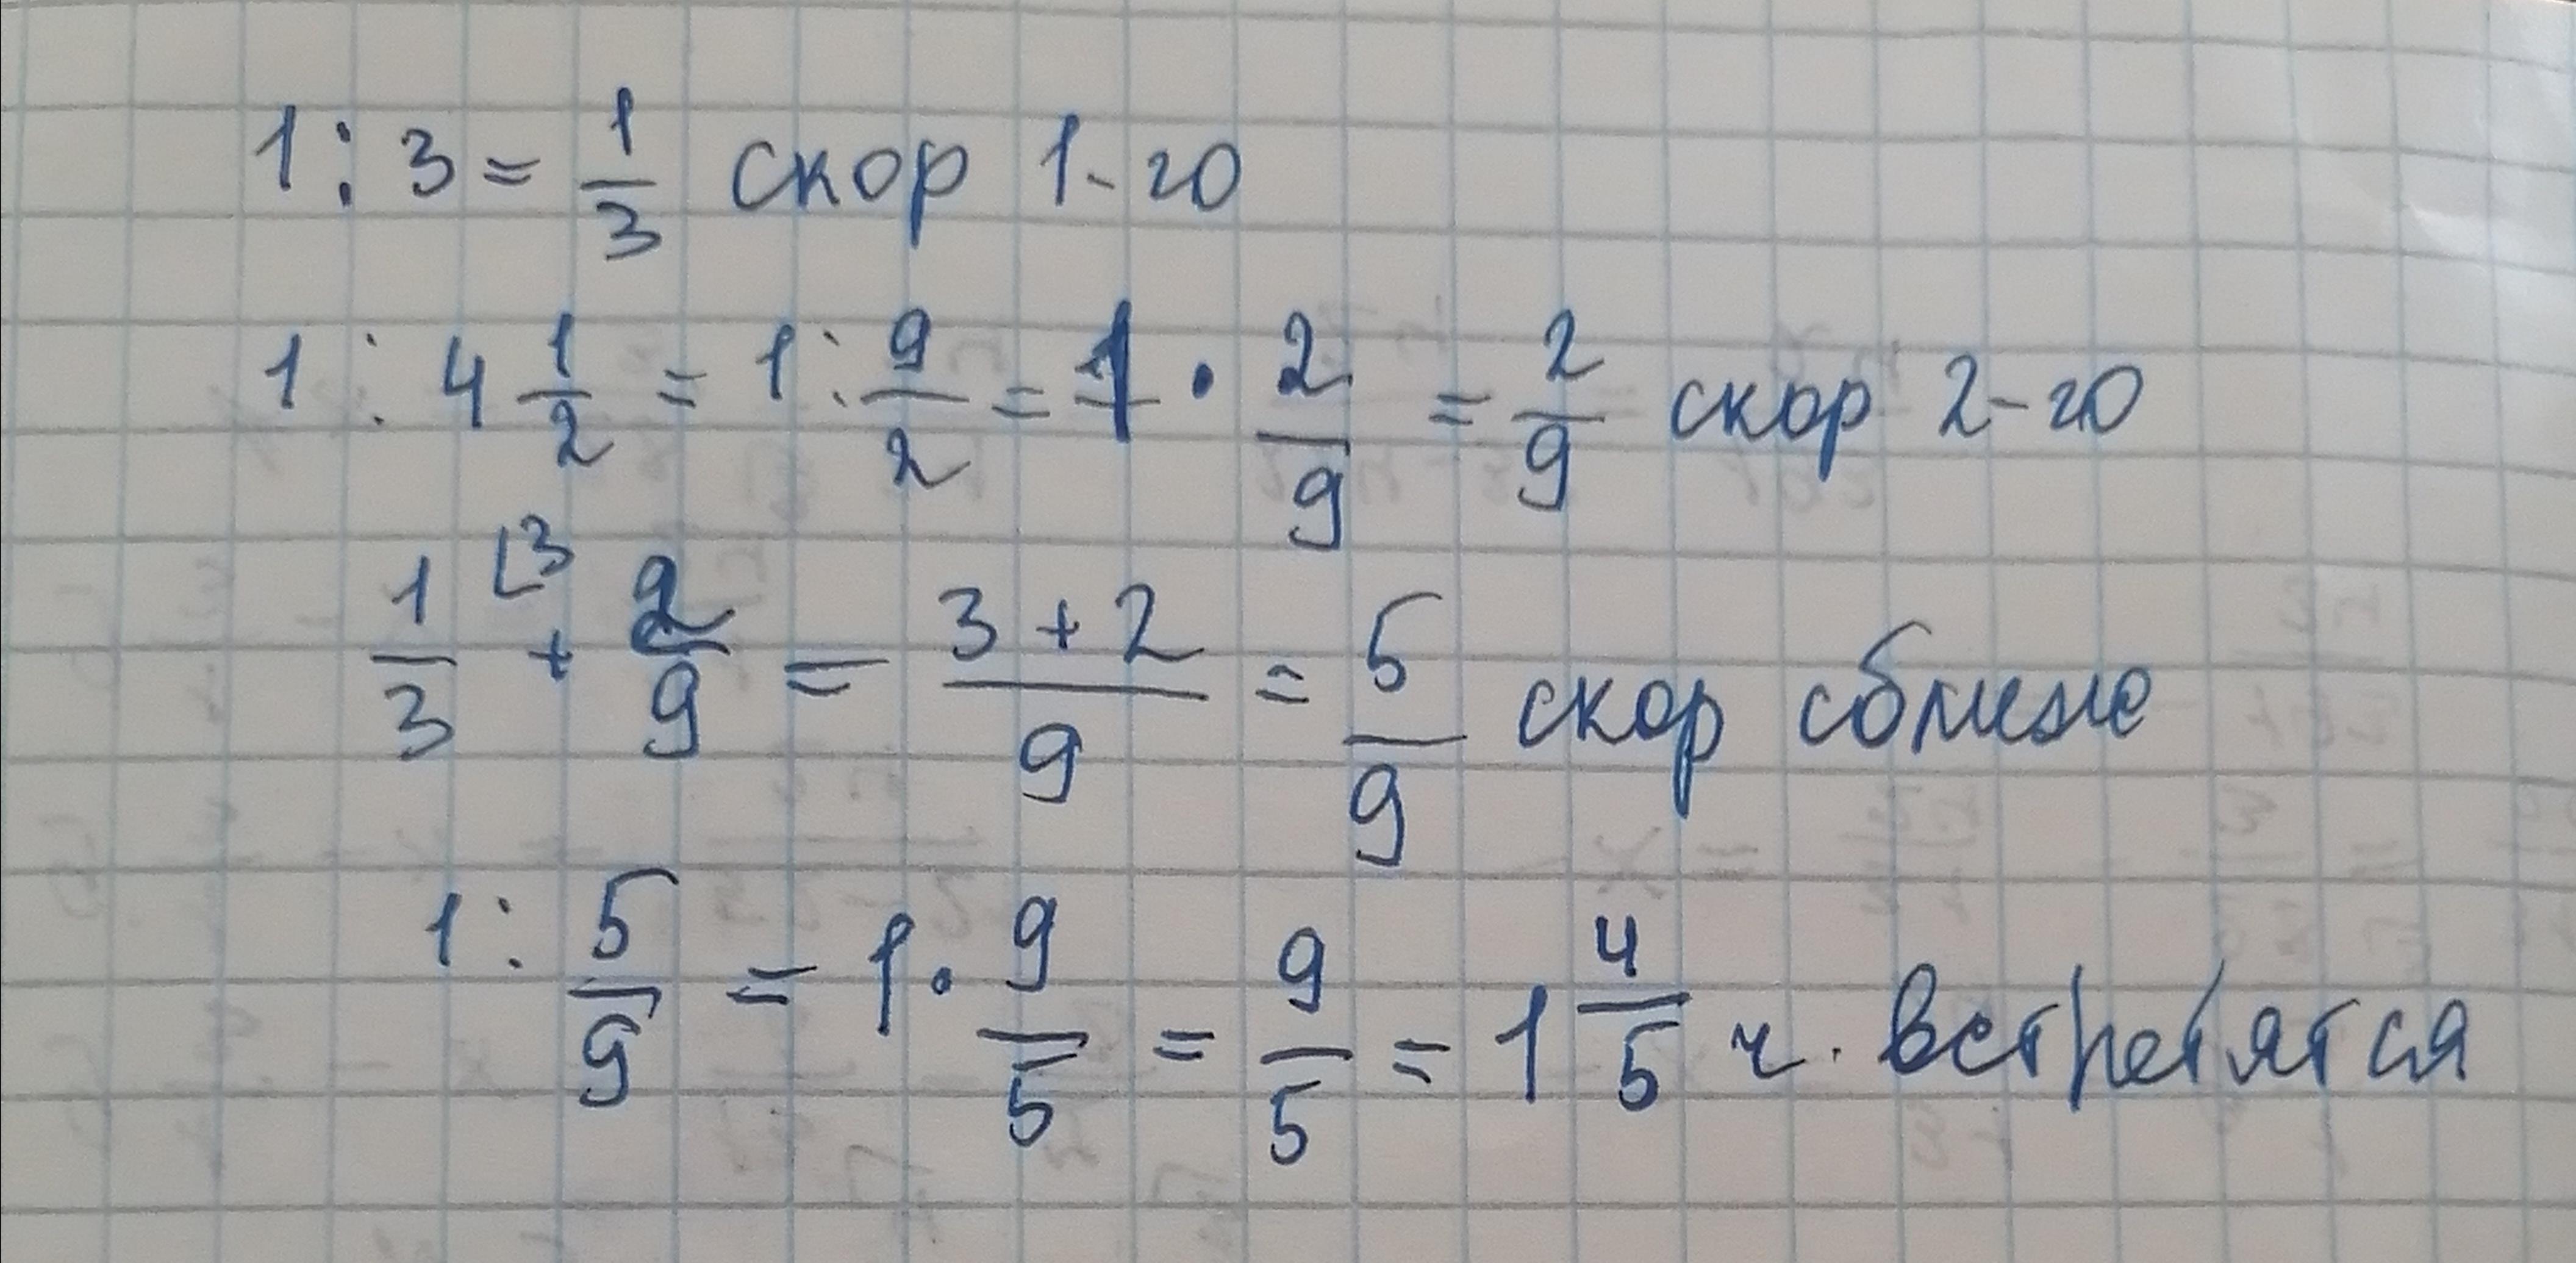 1 : 3 = 1/3 скор 1-го
1 : 4 1/2 = 1 : 9/2 = 1 · 2/9 = 2/9 скор 2-го
1/3 ⌊3 + 2/9 = (3 + 2)/9 = 5/9 скор сближе
1 : 5/9 = 1 · 9/5 = 9/5 = 1 4/5 ч. встретятся